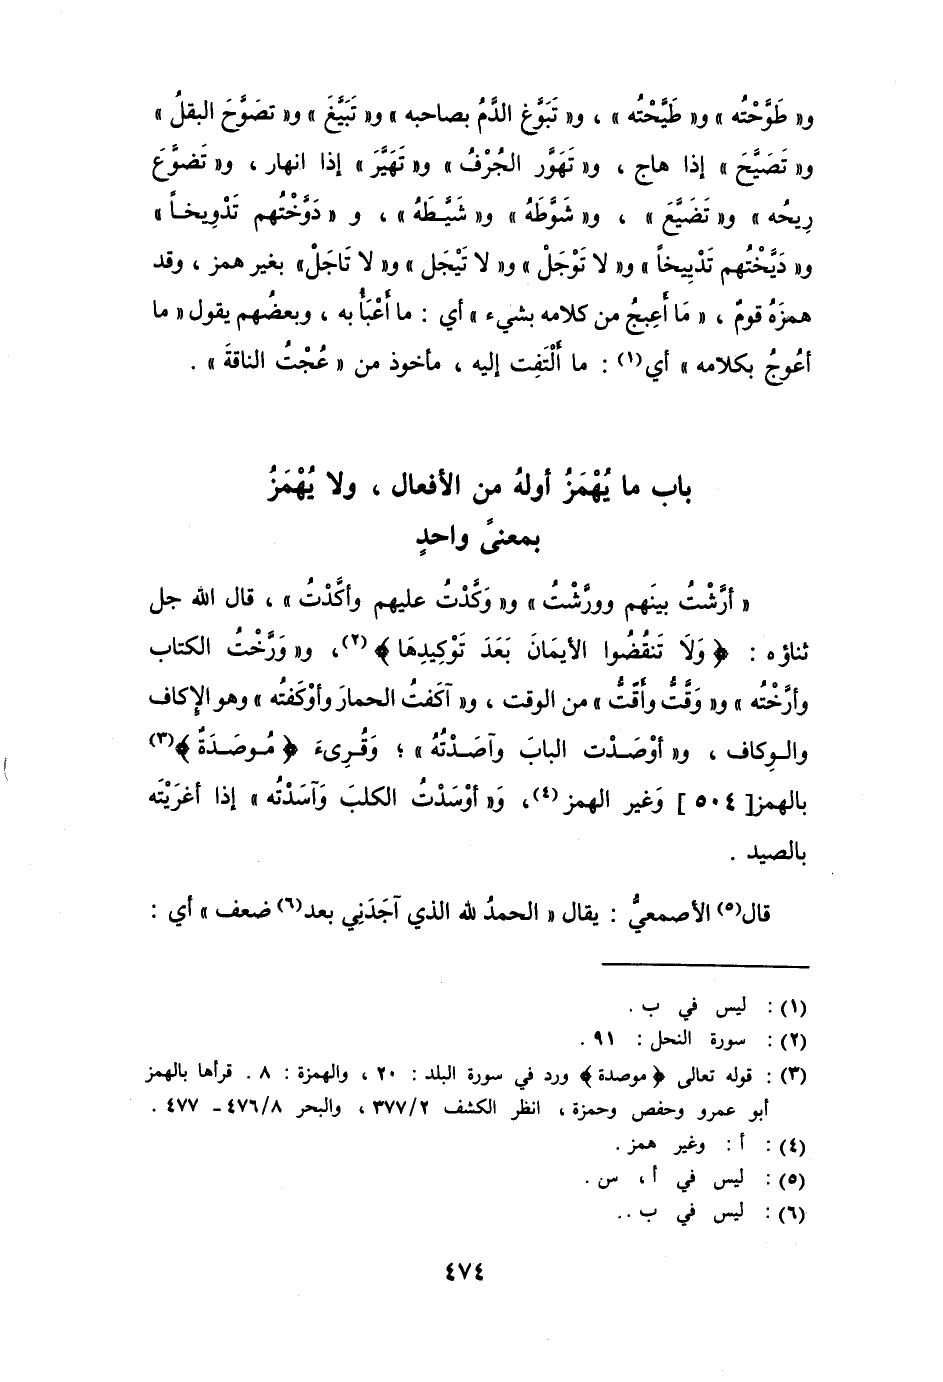 و« طَوَّحْتُه » و« طَيَّحْتُه » ، و« تَبَوَّغ الدَّمُ بصاحبه » و« تَبَيَّغَ » و« تصَوَّحَ البقلُ »
و« تَصَيَّحَ » إذا هاج ، و« تَهَوَّر الجُرْفُ » و« تَهَيَّرَ » إذا انهار ، و« تَضوَّعَ
رِيحُه » و« تَضَيَّعَ » ، و« شَوَّطَهُ » و« شَيَّطَهُ » ، و « دَوَّخْتُهم تَدْوِيخاً »
و« دَيَّخْتُهم تَدْيِيخاً » و« لا تَوْجَلْ » و« لا تَيْجَل » و« لا تَاجَلْ » بغير همز ، وقد
همزَهُ قومٌ ، « مَا أَعِيجُ من كلامه بشيء » أي : ما أَعْبَأُ به ، وبعضُهم يقول « ما
أعُوجُ بكلامه » أي(١) : ما أَلْتَفِت إليه ، مأخوذ من « عُجْتُ الناقةَ » .
باب ما يُهْمَزُ أولهُ من الأفعال ، ولا يُهْمَزُ
بمعنىً واحدٍ
« أرَّشْتُ بينَهم وورَّشْتُ » و« وَكَّدْتُ عليهم وأكَّدْتُ » ، قال الله جل
ثناؤه : ﴿ وَلَا تَنقُضُوا الأيمَانَ بَعَدَ تَوْكِيدِهَا ﴾(٢)، و« وَرَّخْتُ الكتاب
وأرَّخْتُه » و« وَقَّتُّ وأَقَّتُّ » من الوقت ، و« آكَفتُ الحمارَ وأوْكَفتُه » وهو الإكاف
والوِكاف ، و« أوْصَدْت البابَ وآصَدْتُهُ » ؛ وَقُرِىءَ ﴿ مُوصَدَةٌ ﴾(٣)
بالهمز[ ٥٠٤ ] وَغير الهمز(٤)، وَ« أوْسَدْتُ الكلبَ وَآسَدْتُه » إذا أغرَيْتَه
بالصيد .
قال(٥) الأصمعيُّ : يقال « الحمدُ لله الذي آجَدَنِي بعد(٦) ضعف » أي :
(١) : ليس في ب .
(٢) : سورة النحل : ٩١ .
(٣) : قوله تعالى ﴿ موصدة ﴾ ورد في سورة البلد : ٢٠ ، والهمزة : ٨ . قرأها بالهمز
أبو عمرو وحفص وحمزة ، انظر الكشف ٣٧٧/٢ ، والبحر ٤٧٦/٨ ـ ٤٧٧ .
(٤) : أ : وغير همز .
(٥) : ليس في أ ، س .
(٦) : ليس في ب ..
٤٧٤